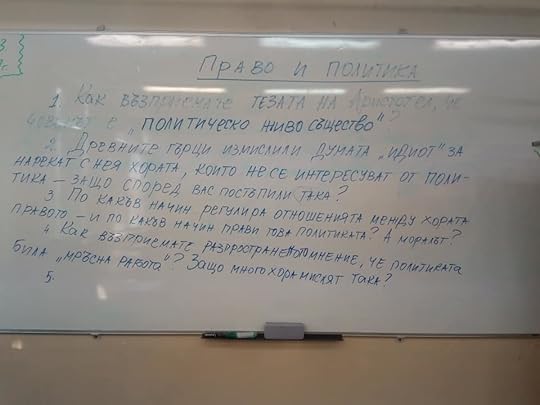 Право и политика
1. Как възприемате тезата на Аристотел, че
човекът е „политическо живо същество"?
2. Древните гърци измислили думата „идиот" за
нарекат с нея хората, които не се интересуват от поли-
тика – защо според вас постъпили така?
3. По какъв начин регулира отношенията между хората
правото – и по какъв начин прави това политиката? А моралът?
4. Как възприемате разпространеното мнение, че политиката
била „мръсна работа"? Защо много хора мислят така?
5.